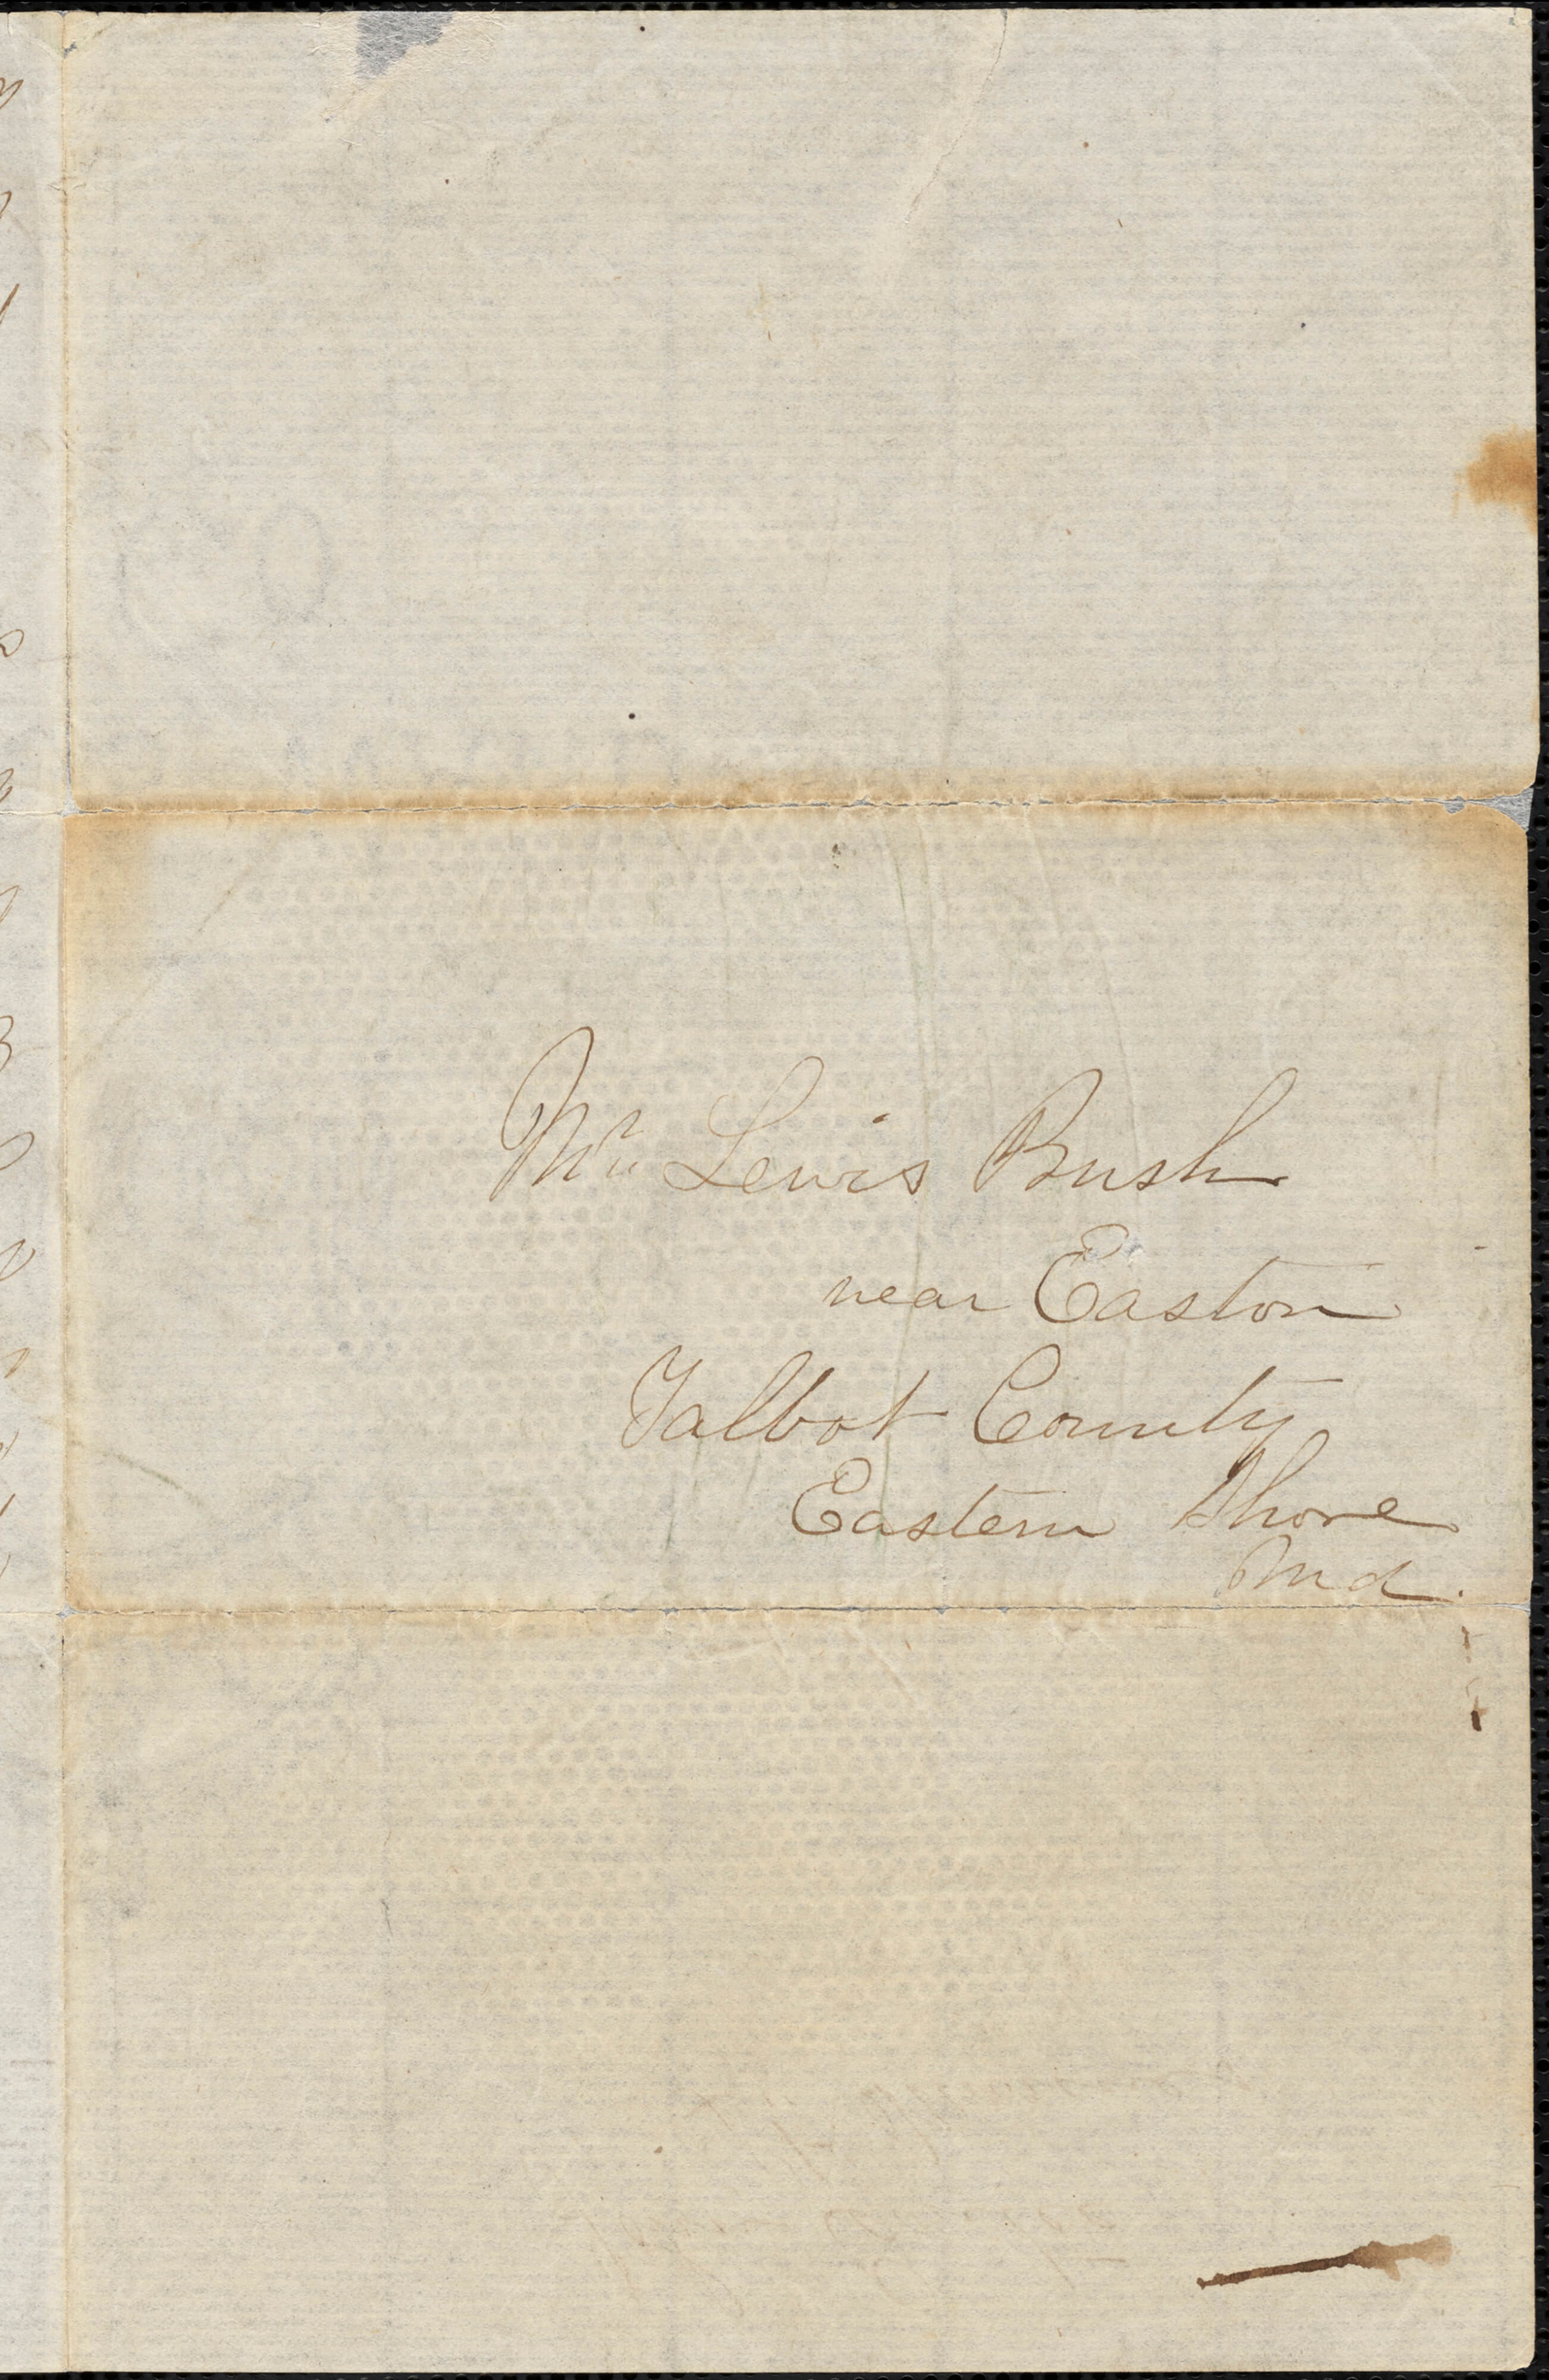 Mr. Lewis Bush
near Easton
Talbot County
Eastern Shore
Md.